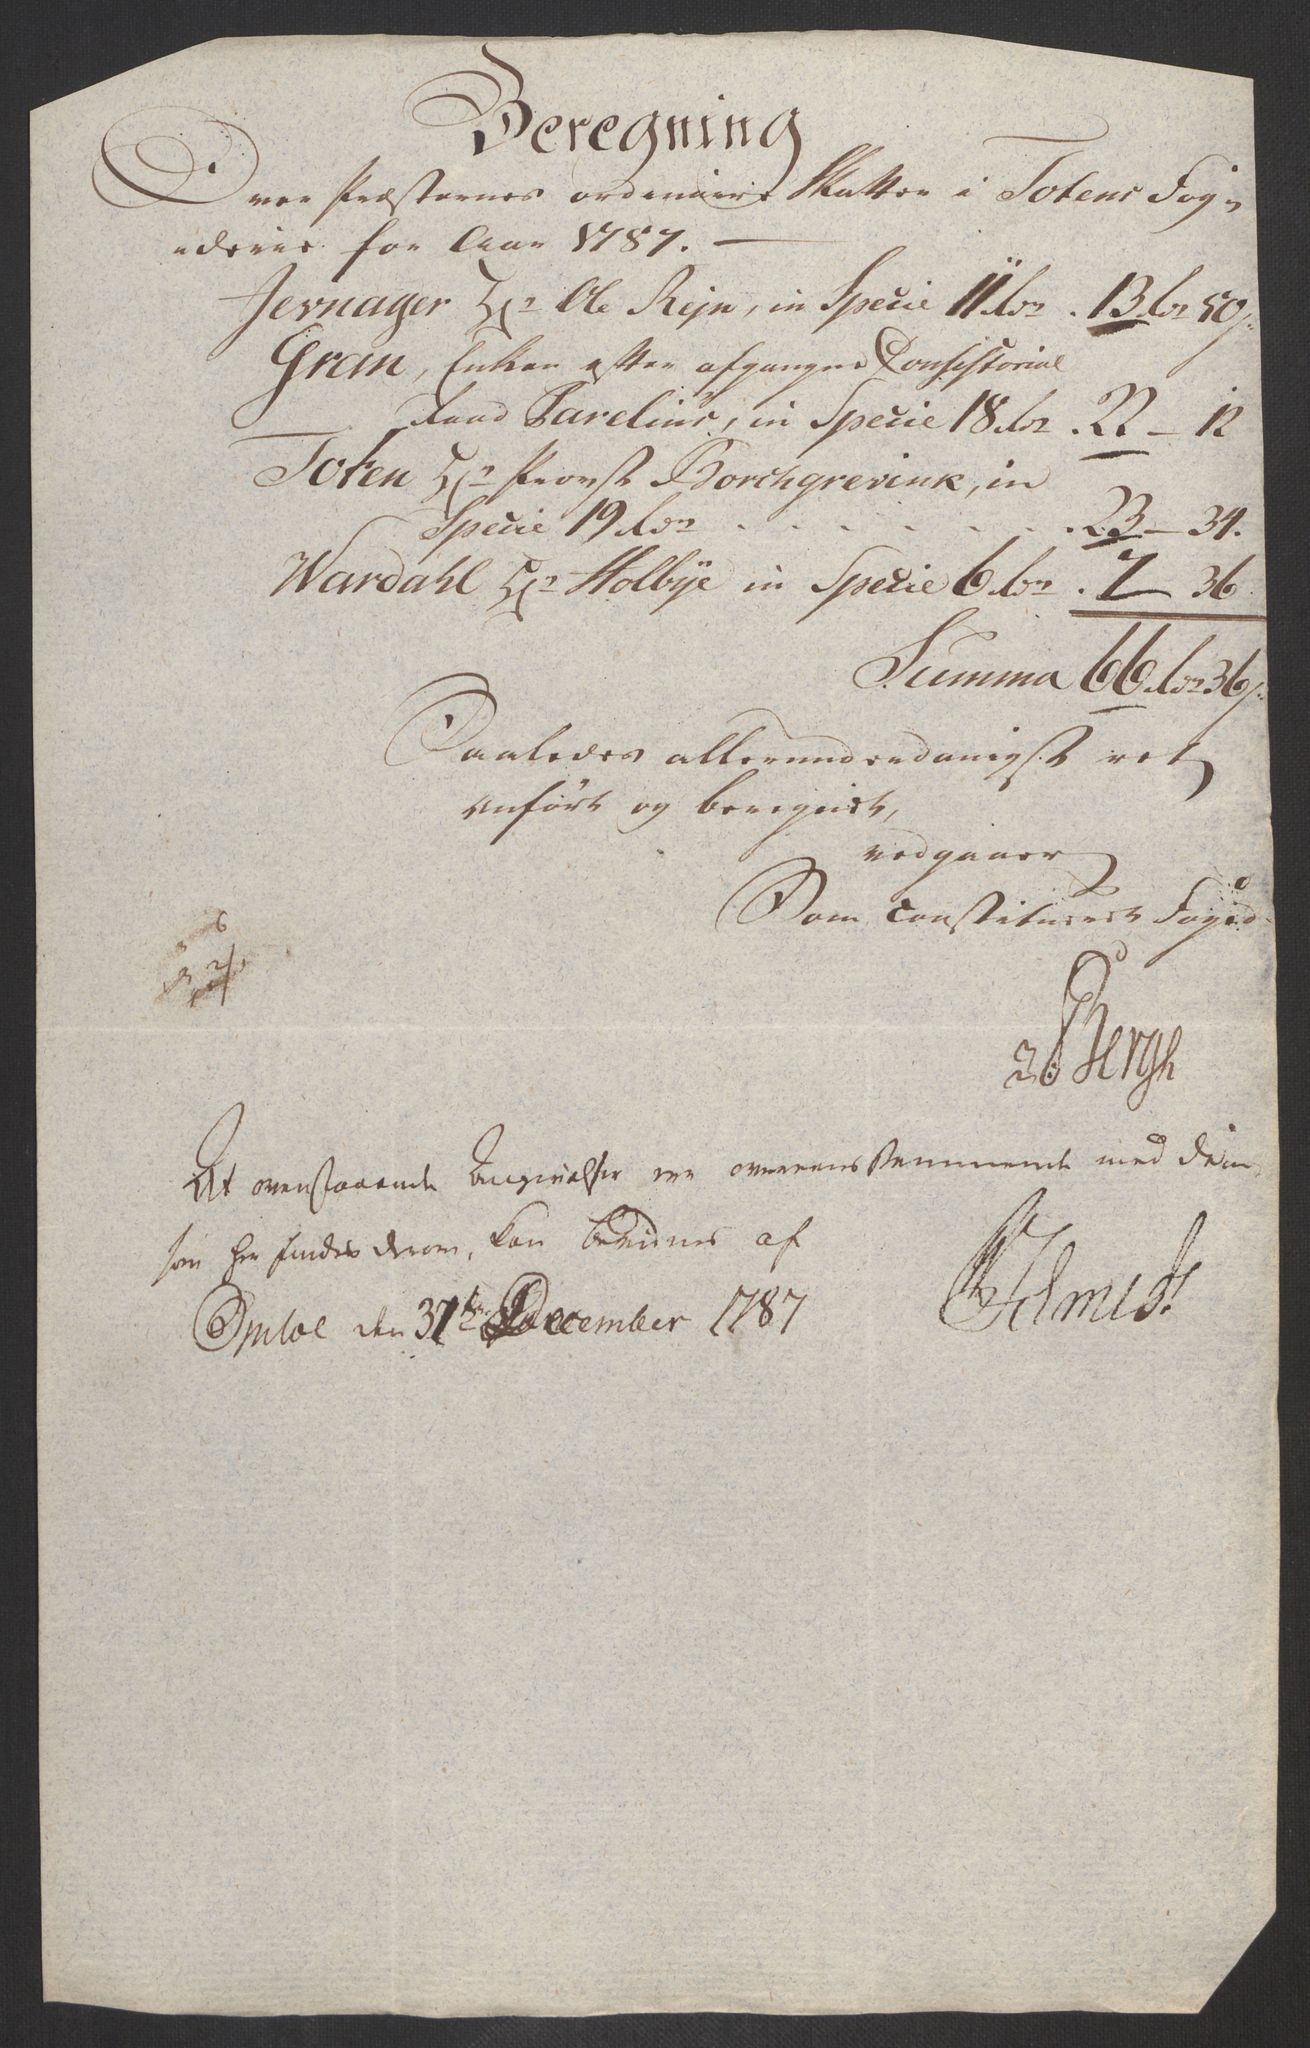 Beregning
Over Præsternes ordinaire Skatter i Totens Fog-
derie for Aar 1787.
Jevnager Hr Ole Rejn, in Specie 11 Rdr . 13 Rdr 50 s
Gran, Enken efter afgangne Consistorial
Raad Parelius, in Specie 18 Rdr . 22 — 12
Toten Hr Provst Borchgrevink, in
Specie 19 Rdr . . . . . . . . 23 — 34.
Wardahl Hr Holbye in Specie 6 Rdr . 7 36
Summa 66 Rdr 36 s
Saaledes allerunderdanigst ret
anført og beregnet,
vedgaaer
Som constitueret Foged
Bergh
At ovenstaaende Angivelser ere overeensstemmende med dem
som her findes derom, kan bevidnes af
den 31te December 1787